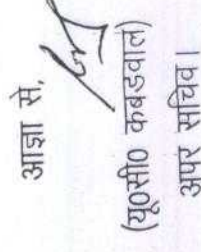 आज्ञा से,
(यू0सी0 कबडवाल)
अपर सचिव।